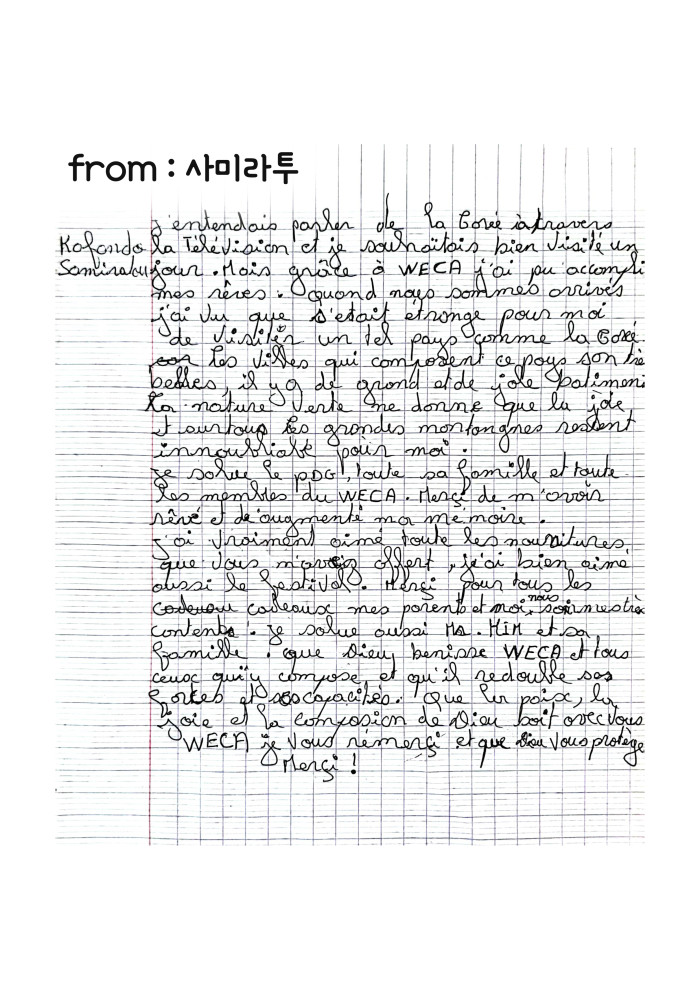 from : 사미라투
j'entendais parler de la Corée àtravers
Kafando la Télévision et je souhaitais bien visité un
Samiratou jour. Mais grâce à WECA j'ai pu accompli
mes rêves. quand nous sommes arrivés
j'ai vu que s'était etrange pour moi
de visiter un tel pays comme la Coré.
les villes qui composent ce pays son trè
belles, il y a de grand et de jolie batiment
La nature verte me donne que la joie
et surtout les grandes montangnes restent
innoubliable pour moi.
je salue le PDG, toute sa famille et toute
les membres du WECA. Merçi de m'avoir
rêvé et de augmenté ma mémoire.
j'ai vraiment aimé toute les nourritures
que vous m'avez offert, j'ai bien aimé
aussi le festival. Merçi pour tous les
cadeaux mes parents et moi, nous soimmes trèx
contents. je salue aussi Mr. MiM et sa
famille. que Dieu benisse WECA et tous
ceux qui y compose, et qu'il redouble ses
forces et ses capacités. Que la paix, la
joie et la compasion de Dieu soit avec vous
WECA je vous rémerçi et que Dieu vous protège
Merçi !